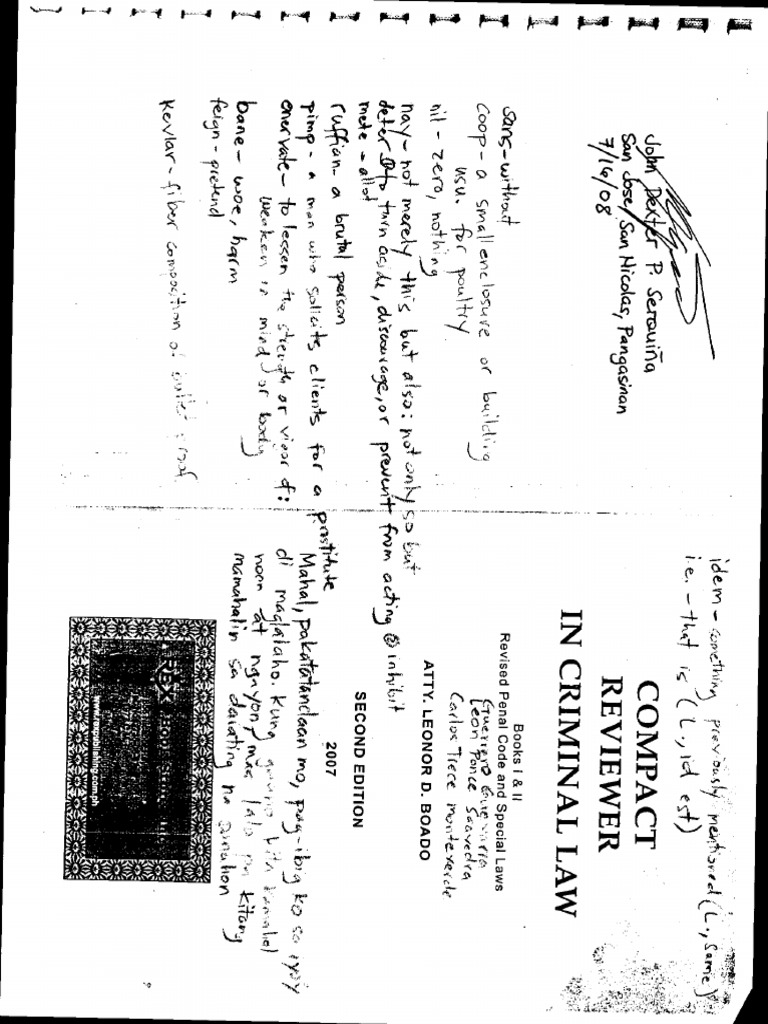 John Dexter P. Serquiña
San Jose, San Nicolas, Pangasinan
7/16/08
sans - without
coop - a small enclosure or building
usu. for poultry
nil - zero, nothing
nay - not merely this but also: not only so but
deter - to turn aside, discourage, or prevent from acting inhibit
mete - allot
ruffian - a brutal person
pimp - a man who solicits clients for a prostitute
enervate - to lessen the strength or vigor of:
weaken in mind or body
bane - woe, harm
feign - pretend
Kevlar - fiber composition of bullet proof
idem - something previously mentioned (L., same)
i.e. - that is (L., id est)
COMPACT
REVIEWER
IN CRIMINAL LAW
Books I & II
Revised Penal Code and Special Laws
Guerrero Guevarra
Leon Ponce Saavedra
Carlos Trece Monteverde
ATTY. LEONOR D. BOADO
SECOND EDITION
2007
Mahal, pakatatandaan mo, pag-ibig ko sa iyo'y
di maglalaho. Kung gaano kita kamahal
noon at ngayon, mas lalo pa kitang
mamahalin sa darating na panahon
REX Book Store
www.rexpublishing.com.ph